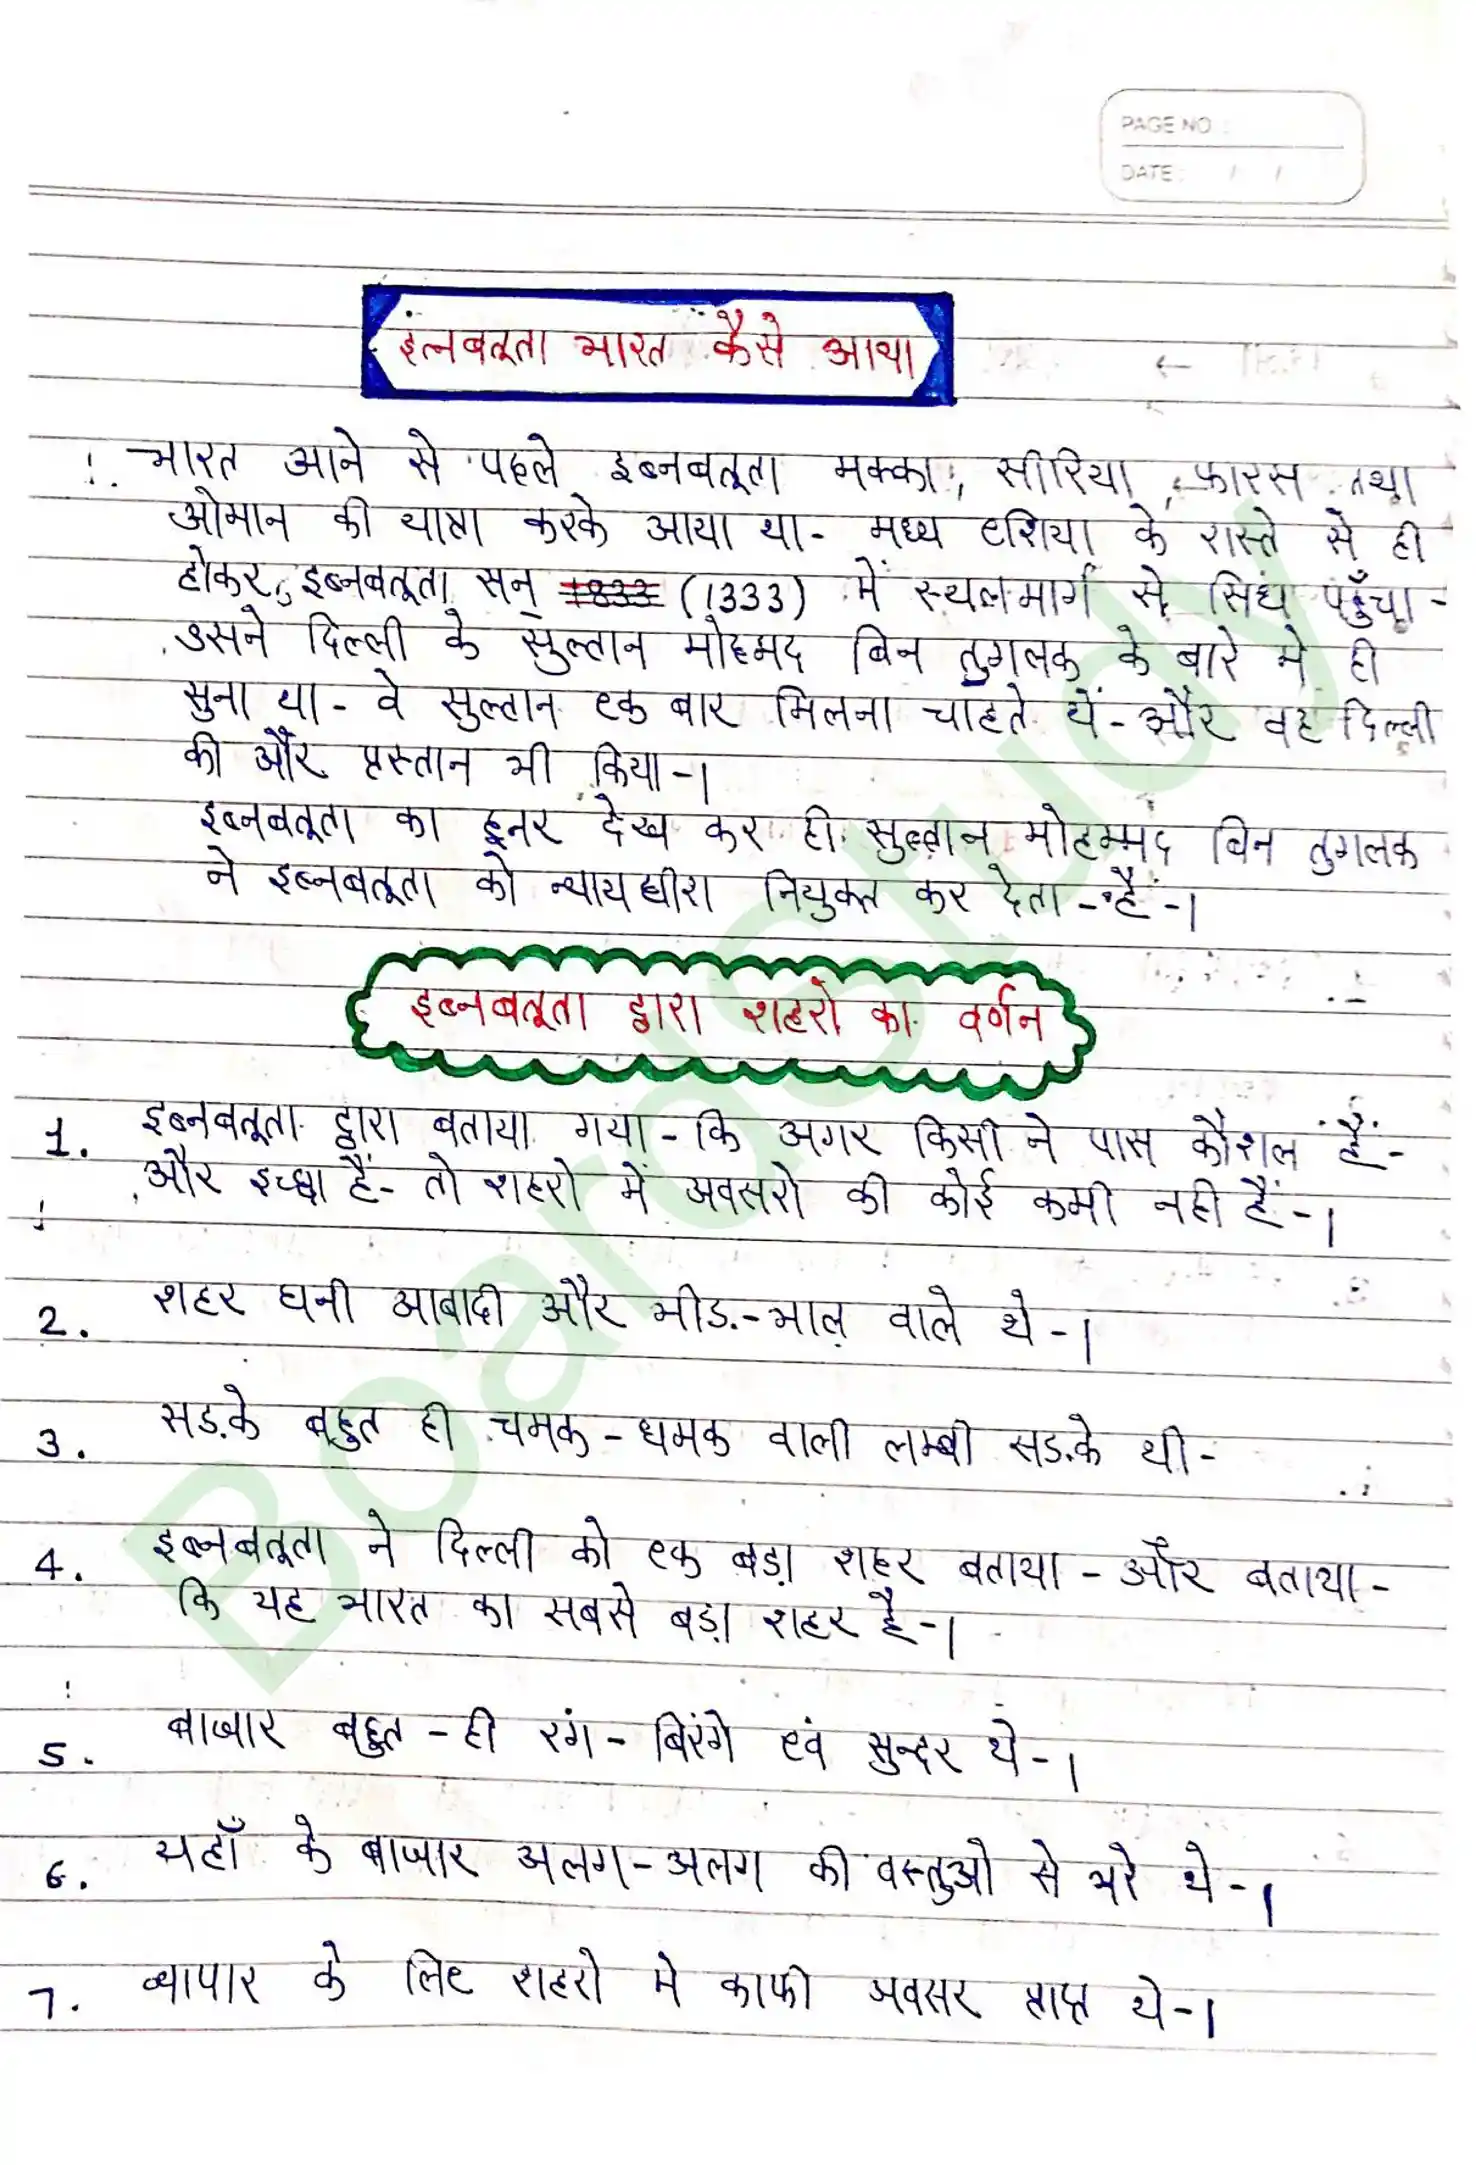 PAGE NO :
DATE : / /
इब्नबतूता भारत कैसे आया
1. भारत आने से पहले इब्नबतूता मक्का, सीरिया, फारस तथा
ओमान की यात्रा करके आया था- मध्य एशिया के रास्ते से ही
होकर, इब्नबतूता सन् 1833 (1333) में स्थलमार्ग से सिंध पहुँचा-
उसने दिल्ली के सुल्तान मोहमद बिन तुगलक के बारे मे ही
सुना था- वे सुल्तान एक बार मिलना चाहते थें- और वह दिल्ली
की और प्रस्तान भी किया-।
इब्नबतूता का हुनर देख कर ही सुल्तान मोहम्मद बिन तुगलक
ने इब्नबतूता को न्यायधीश नियुक्त कर देता - है -।
इब्नबतूता द्वारा शहरो का वर्णन
1. इब्नबतूता द्वारा बताया गया - कि अगर किसी ने पास कौशल हैं-
और इच्छा हैं- तो शहरो में अवसरो की कोई कमी नही हैं -।
2. शहर घनी आबादी और भीड.-भाल वाले थे -।
3. सड.के बहुत ही चमक - धमक वाली लम्बी सड.के थी -
4. इब्नबतूता ने दिल्ली को एक बड़ा शहर बताया - और बताया -
कि यह भारत का सबसे बड़ा शहर है -।
5. बाजार बहुत - ही रंग - बिरंगे एवं सुन्दर थे -।
6. यहाँ के बाजार अलग - अलग की वस्तुओ से भरे थे -।
7. व्यापार के लिए शहरो मे काफी अवसर प्राप्त थे -।
BoardStudy